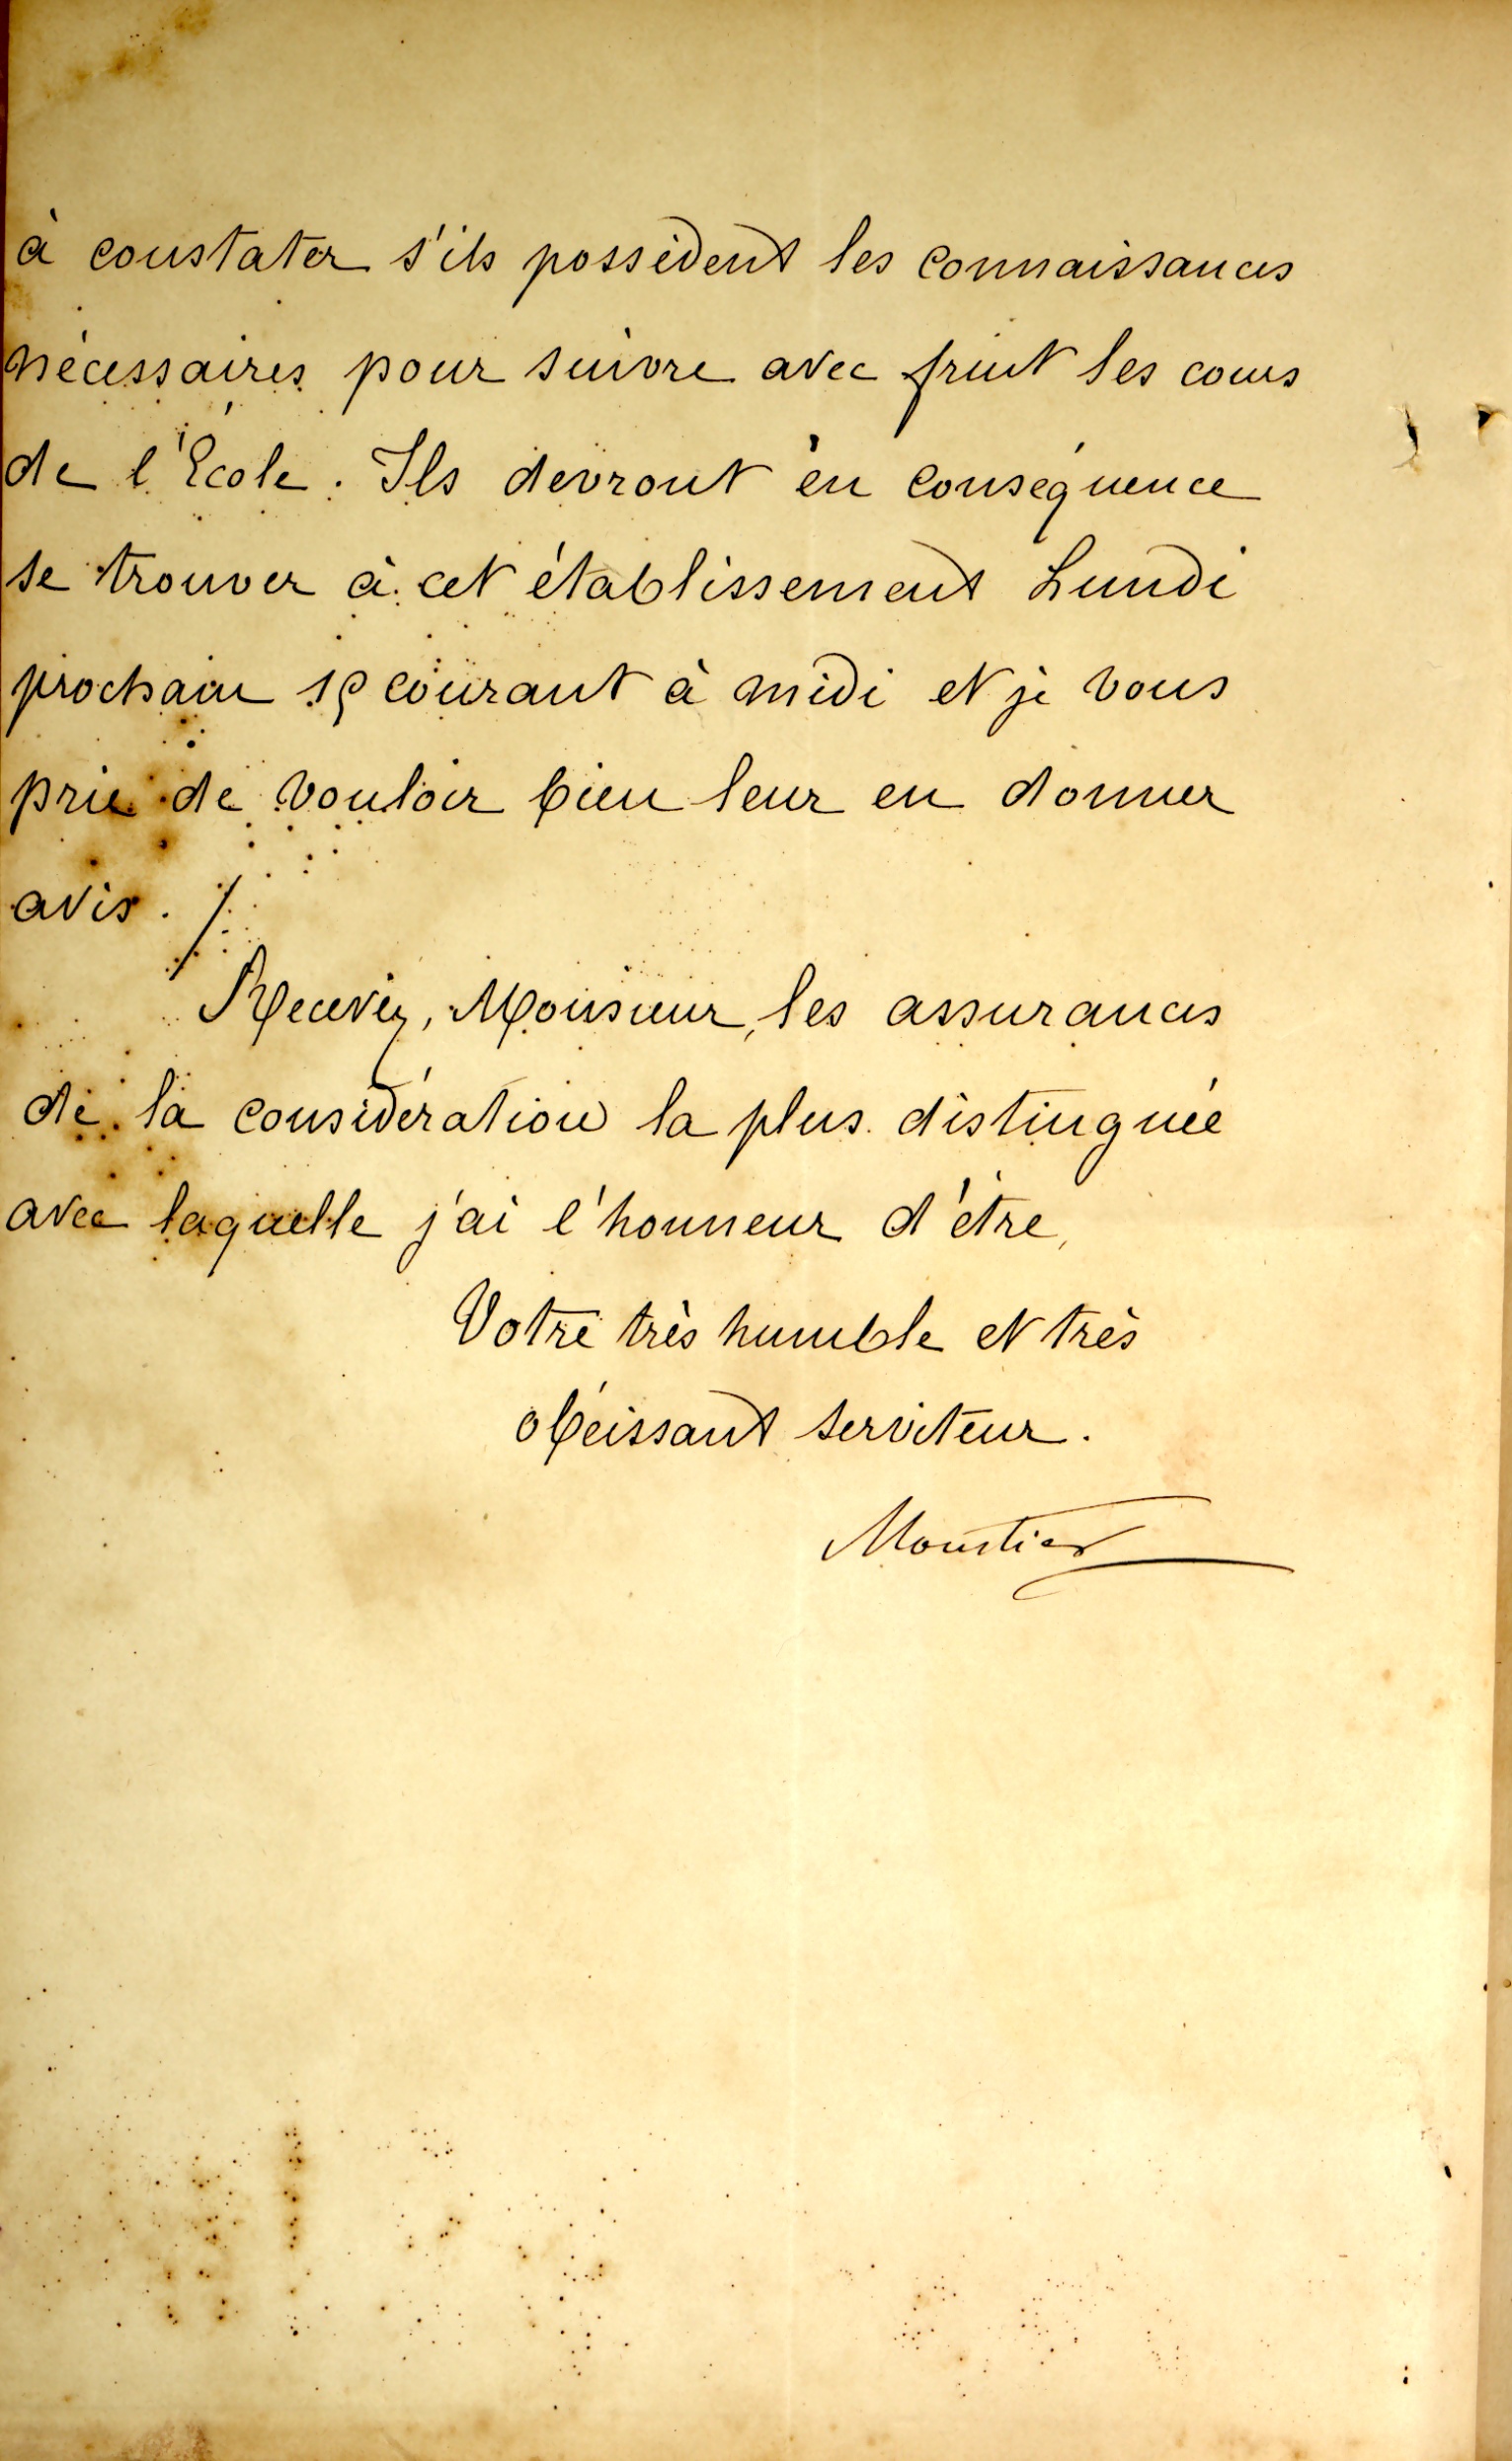 à constater s'ils possèdent les connaissances
nécessaires pour suivre avec fruit les cours
de l'École. Ils devront en conséquence
se trouver à cet établissement Lundi
prochain courant à midi et je vous
prie de vouloir bien leur en donner
avis ./.
Recevez, Monsieur, les assurances
de la considération la plus distinguée
avec laquelle j'ai l'honneur d'être,
Votre très humble et très
obéissant serviteur.
Moustier